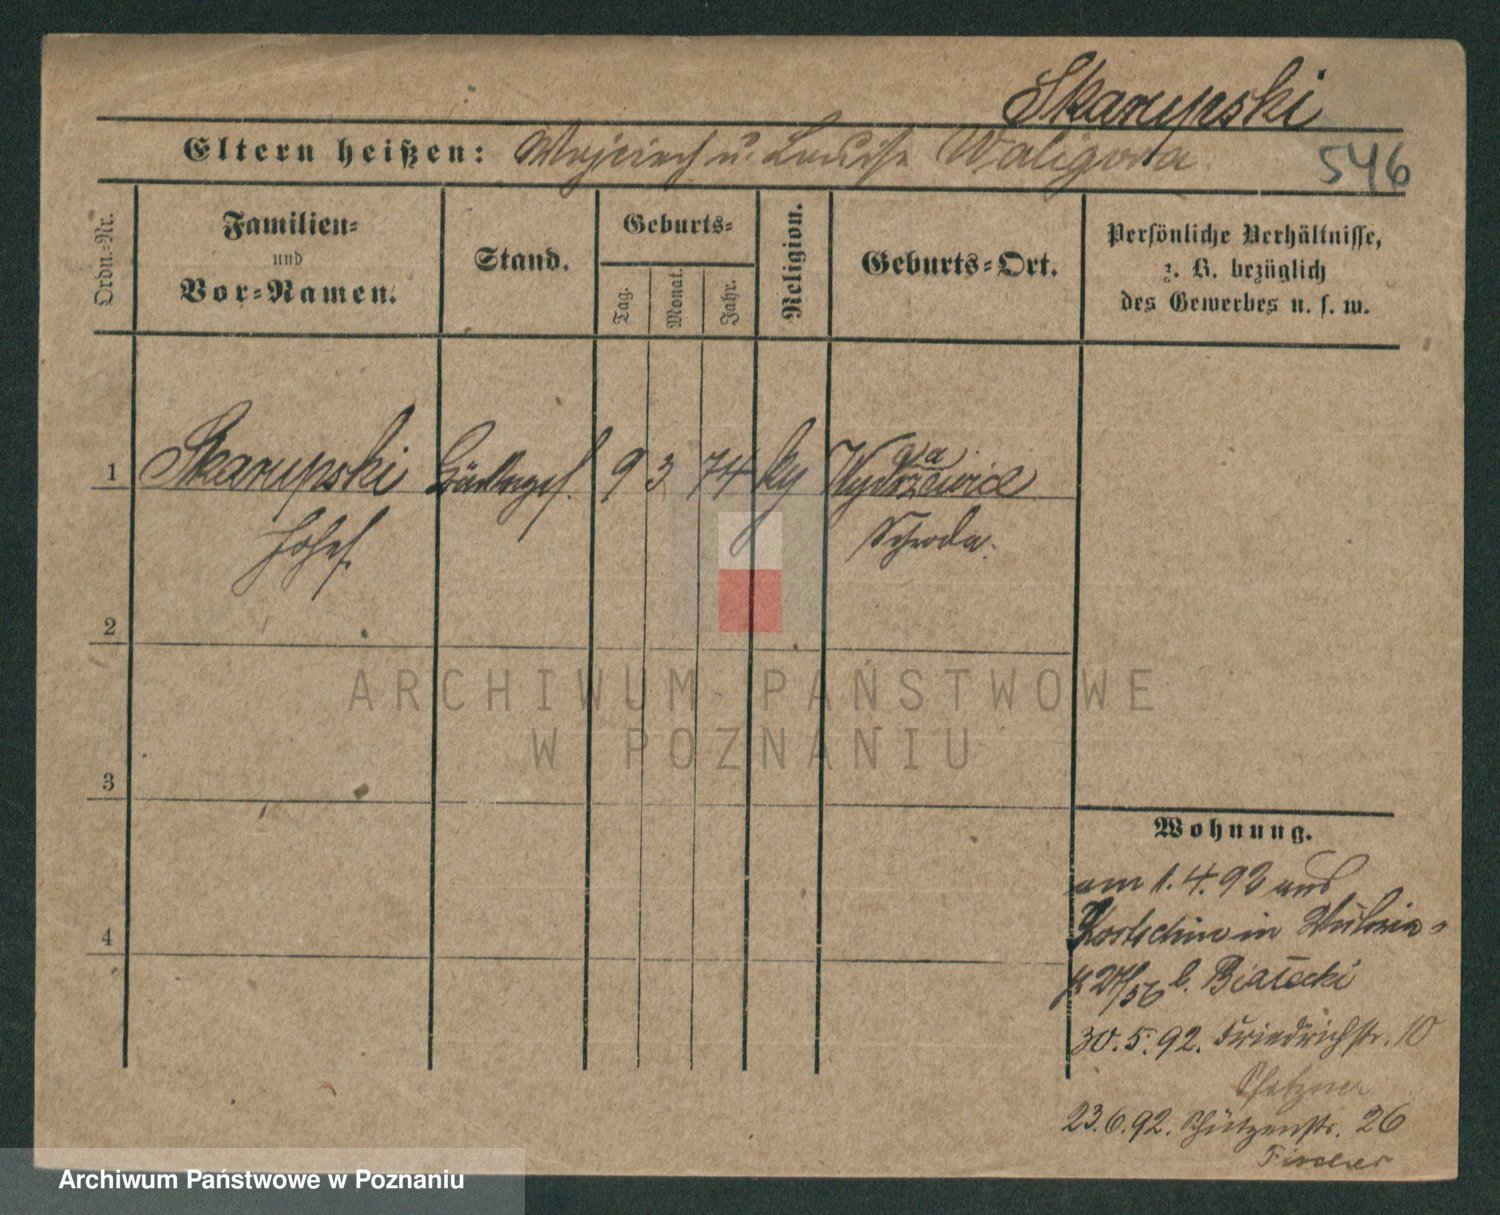 Skarupski
Eltern heißen: Wojciech u. Louise Waligora
546
Ordn.-Nr.
Familien-
und
Vor-Namen.
Stand.
Geburts-
Tag.
Monat.
Jahr.
Religion.
Geburts-Ort.
Persönliche Verhältnisse,
z. B. bezüglich
des Gewerbes u. s. w.
1 Skarupski 9 3 74
Josef
Schroda.
2
3
4
ARCHIWUM PAŃSTWOWE
W POZNANIU
Wohnung.
am 1.4.92 aus
Kostschin in
b. Białecki
30.5.92. Friedrichstr. 10
Pfitzner
23.6.92. Schützenstr. 26
Fischer
Archiwum Państwowe w Poznaniu